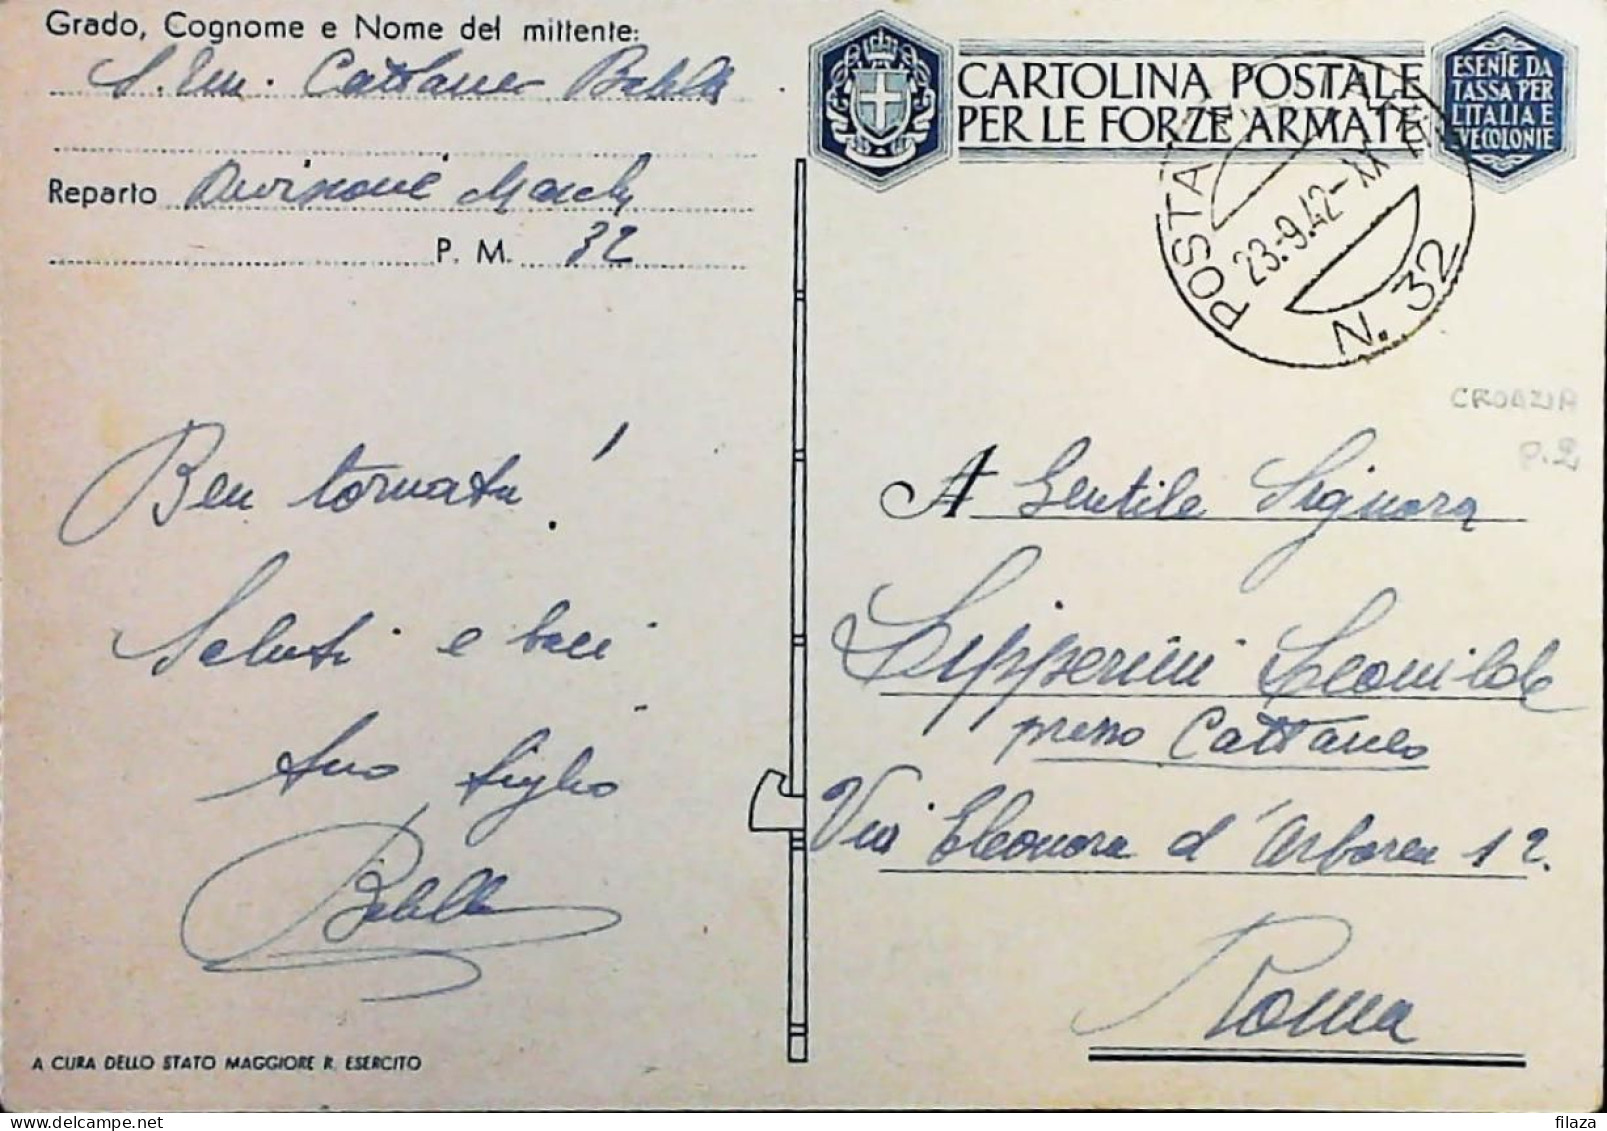 Grado, Cognome e Nome del mittente:
S. Ten. Cattaneo Balilla
Reparto Divisione
P. M. 32
CARTOLINA POSTALE
PER LE FORZE ARMATE
ESENTE DA
TASSA PER
L'ITALIA E
VE COLONIE
POSTA MILITARE
23.9.42-XX
N. 32
CROAZIA
P.2
Ben tornata!
Saluti e baci
Suo figlio
Balilla
A Gentile Signora
Lipperini Leonilde
presso Cattaneo
Via Eleonora d'Arborea 12.
Roma
A CURA DELLO STATO MAGGIORE R. ESERCITO
filaza